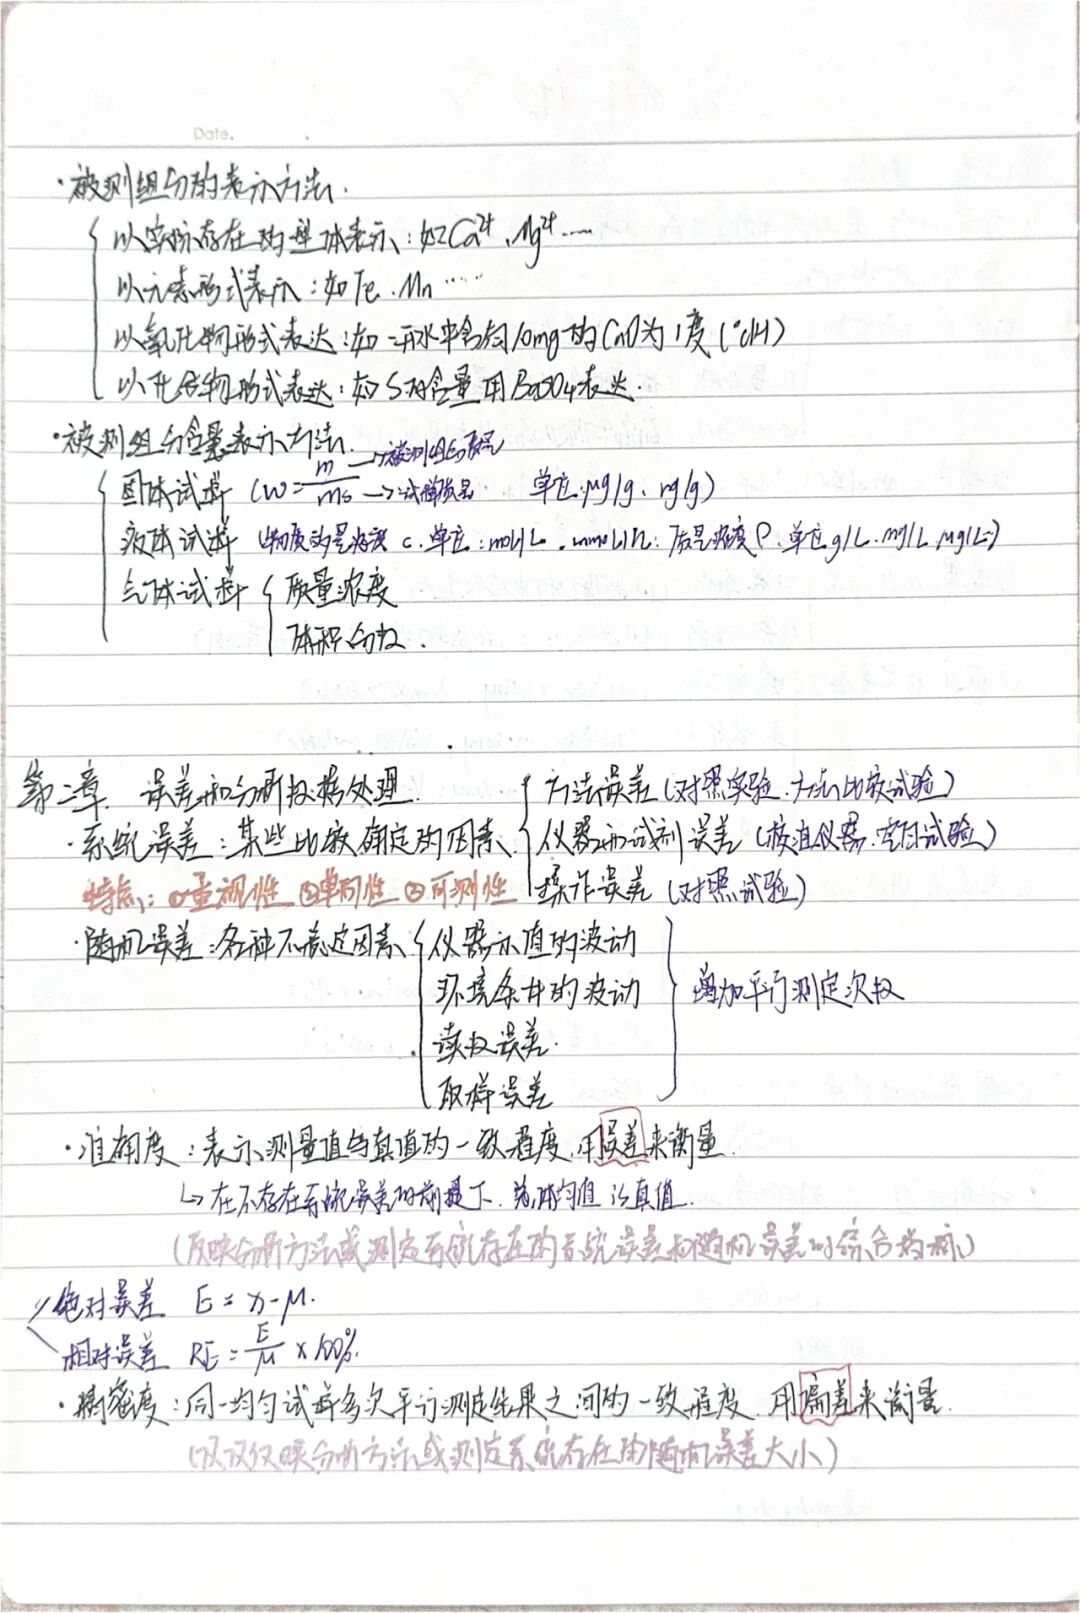 Date.
·被测组分的表示方法.
以实际存在的型体表示:如Ca²⁺、Mg²⁺……
以元素形式表示:如Fe、Mn……
以氧化物形式表达:如一升水中含有10mg的CaO为1度(°dH)
以化合物形式表达:如S的含量用BaSO4表达.
·被测组分含量表示方法.
固体试样 (w=m/ms m→被测组分质量 ms→试样质量 单位:μg/g、ng/g)
液体试样 (物质的量浓度 c.单位:mol/L、mmol/L;质量浓度ρ.单位g/L、mg/L、μg/L)
气体试样 质量浓度
体积分数.
第二章 误差和分析数据处理.
·系统误差:某些比较确定的因素
方法误差(对照实验、方法比较试验)
仪器和试剂误差(校准仪器、空白试验)
操作误差(对照试验)
特点:①重现性 ②单向性 ③可测性
·随机误差:各种不确定因素 仪器示值的波动
环境条件的波动
读数误差.
取样误差
增加平行测定次数
·准确度:表示测量值与真值的一致程度,用误差来衡量.
↳在不存在系统误差的前提下,总体均值为真值.
(反映分析方法或测定系统存在的系统误差和随机误差的综合指标)
绝对误差 E=x-μ.
相对误差 RE=E/μ×100%.
·精密度:同一均匀试样多次平行测定结果之间的一致程度,用偏差来衡量.
(仅仅反映分析方法或测定系统存在的随机误差大小)